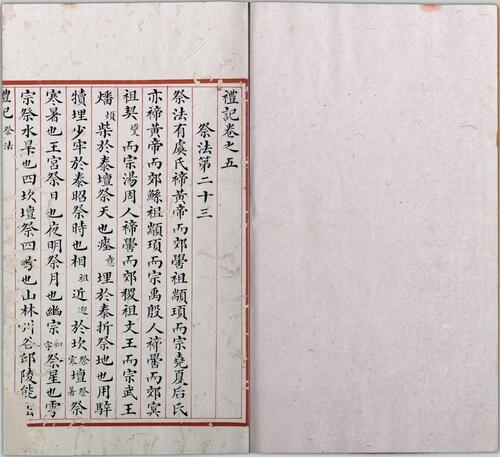 禮記卷之五
祭法第二十三
祭法有虞氏禘黃帝而郊嚳祖顓頊而宗堯夏后氏
亦禘黃帝而郊鯀祖顓頊而宗禹殷人禘嚳而郊冥
祖契而宗湯周人禘嚳而郊稷祖文王而宗武王
燔煩柴於泰壇祭天也瘞意埋於泰折祭地也用騂
犢埋少牢於泰昭祭時也相祖近迎於坎祭寒壇祭暑祭
寒暑也王宮祭日也夜明祭月也幽宗如字祭星也雩
宗祭水旱也四坎壇祭四也山林川谷邱陵能
禮記 祭法